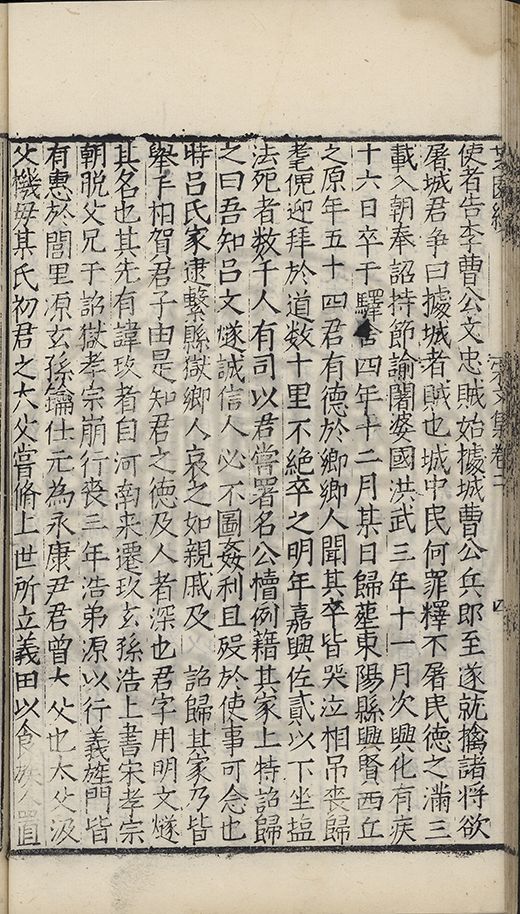 使者告李曹公文忠賊始據城曹公兵即至遂就擒諸將欲
屠城君爭曰據城者賊也城中民何罪釋不屠民德之滿三
載入朝奉詔持節諭闍婆國洪武三年十一月次興化有疾
十六日卒于驛舍四年十二月某日歸塟東陽縣興賢西丘
之原年五十四君有德於鄉鄉人聞其卒皆哭泣相吊喪歸
耄倪迎拜於道数十里不絶卒之明年嘉興佐貳以下坐塩
法死者数千人有司以君嘗署名公牘例籍其家上特詔歸
之曰吾知呂文燧誠信人必不圖姦利且殁於使事可念也
時呂氏家逮繫縣獄鄉人哀之如親戚及 詔歸其家乃皆
舉手相賀君子由是知君之徳及人者深也君字用明文燧
其名也其先有諱玫者自河南来遷玫玄孫浩上書宋孝宗
朝脱父兄于詔獄孝宗崩行喪三年浩弟源以行義旌門皆
有惠於閭里源玄孫鑰仕元為永康尹君曾大父也大父汲
父機母某氏初君之大父嘗脩上世所立義田以食族人置